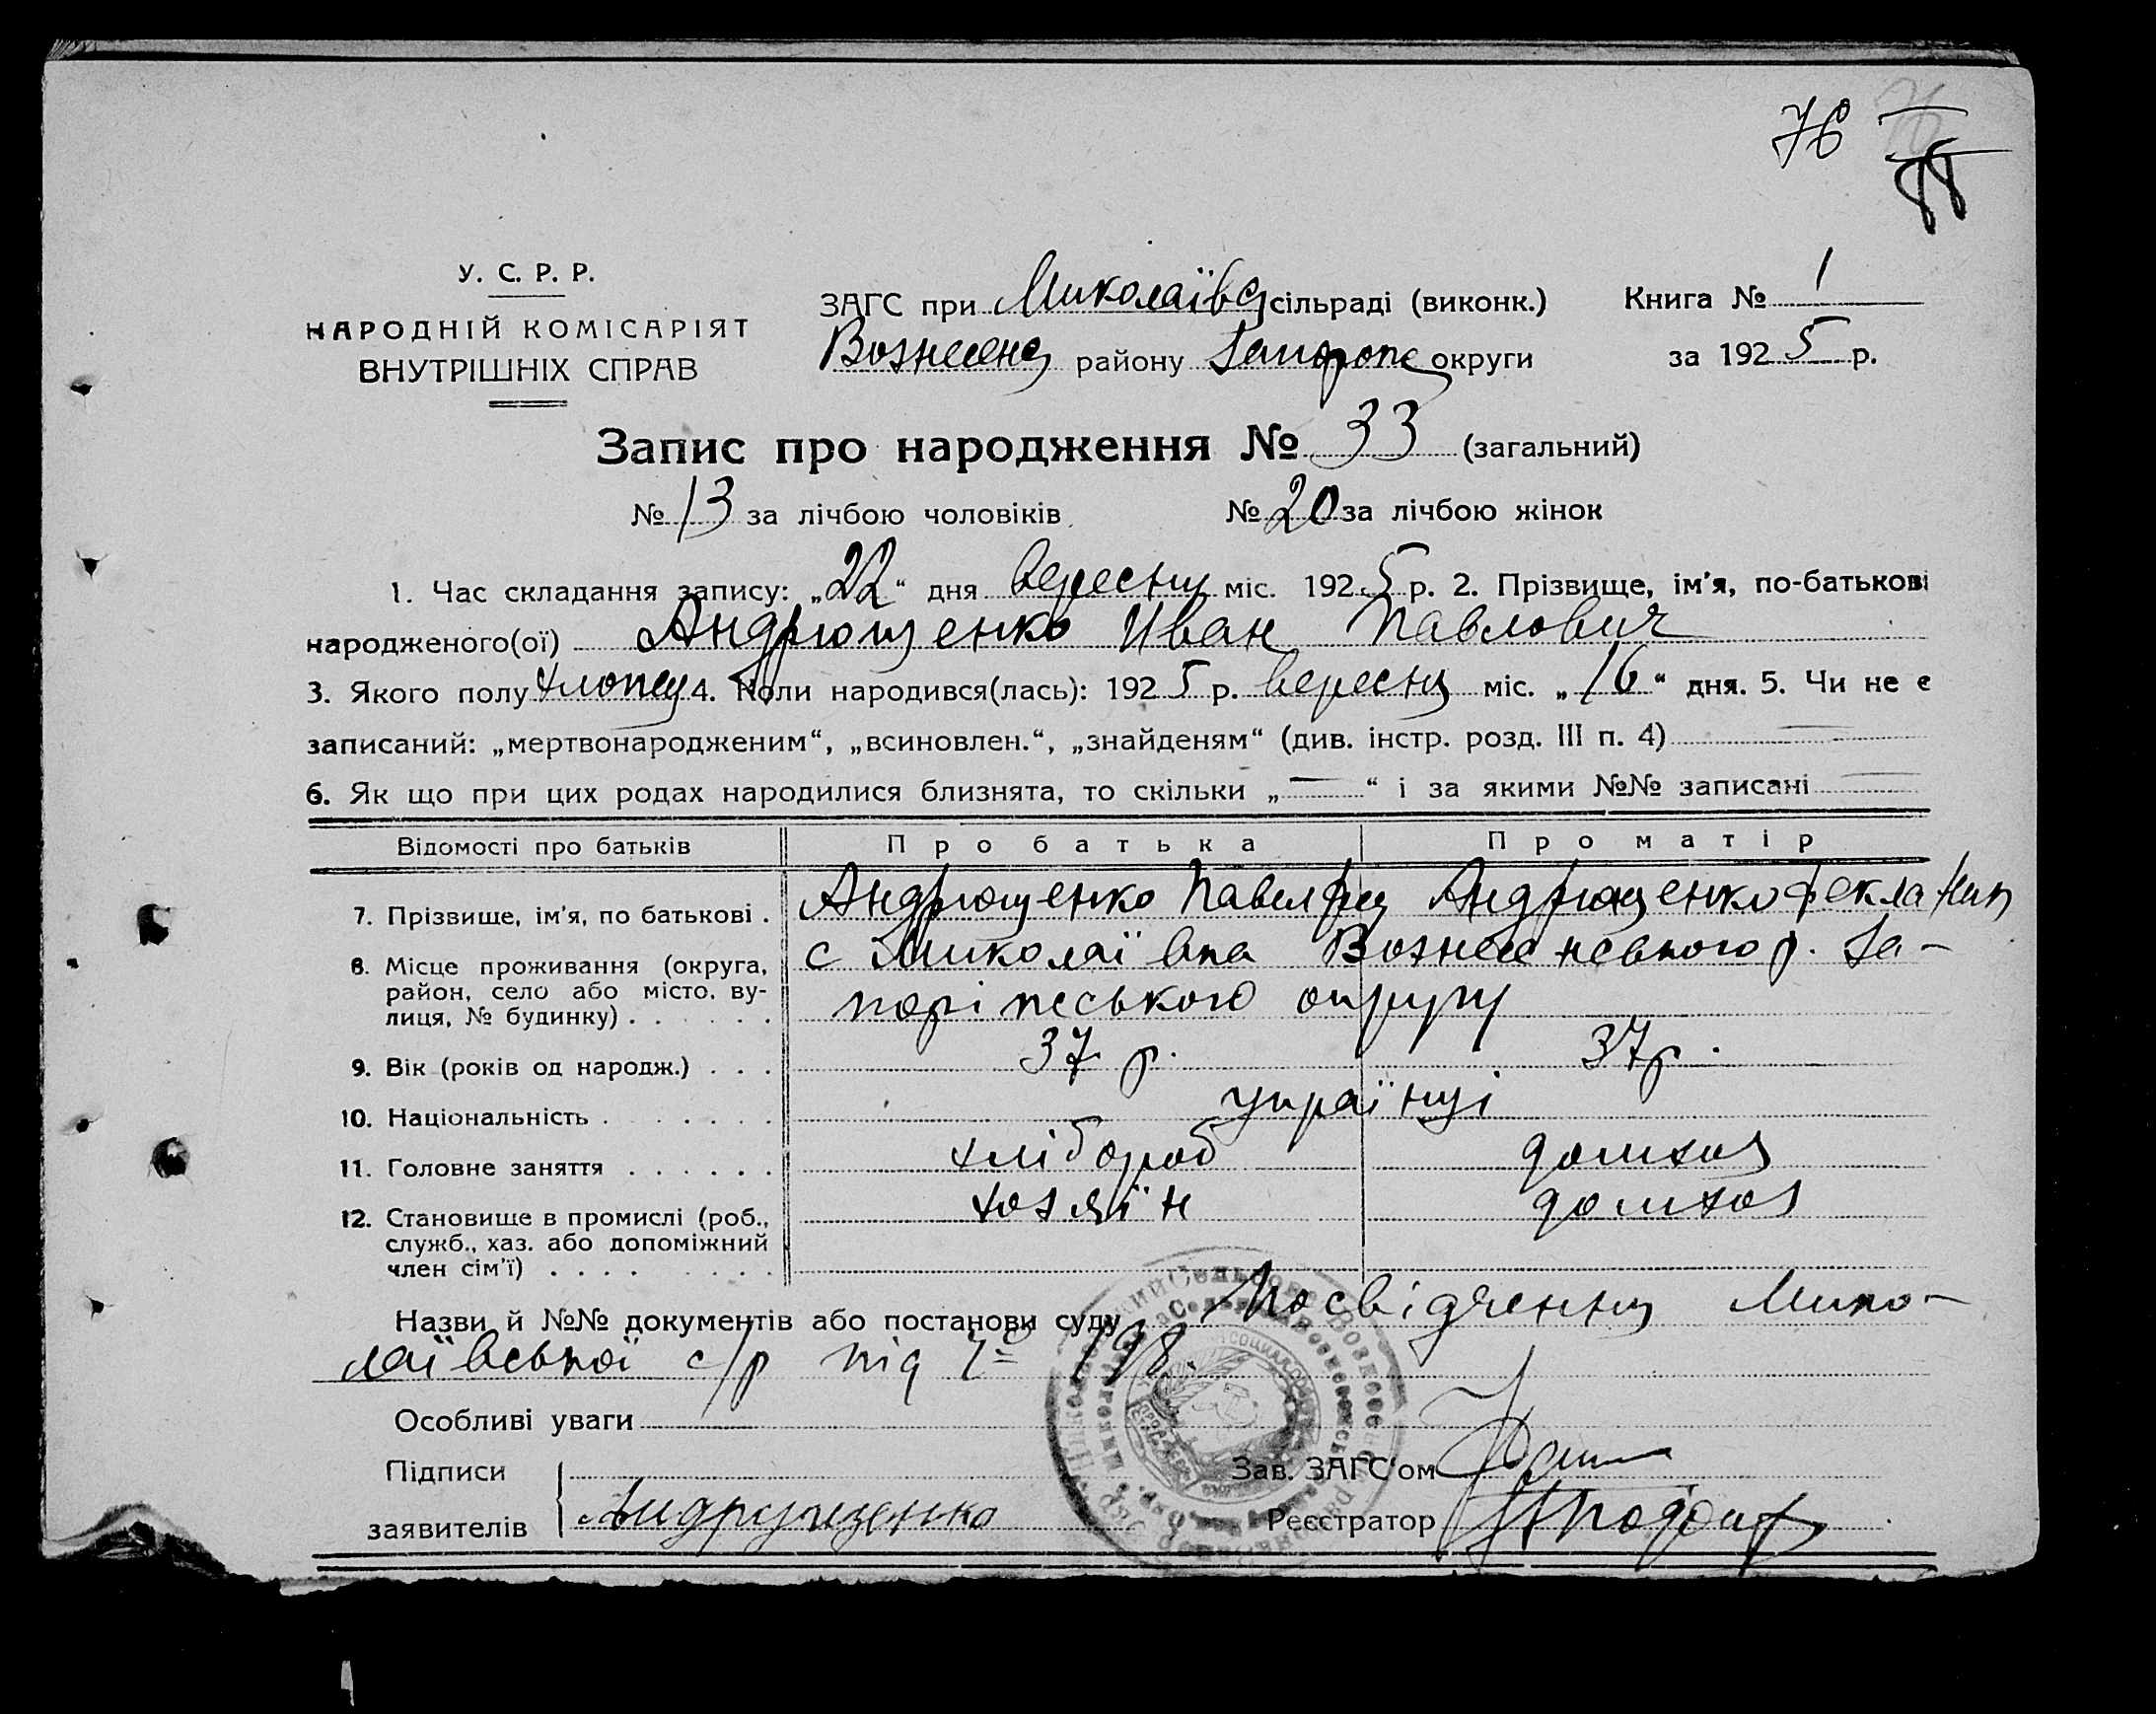 76
У. С. Р. Р.
НАРОДНІЙ КОМІСАРІЯТ
ВНУТРІШНІХ СПРАВ
ЗАГС при Миколаївс сільраді (виконк.)
Вознесенс району Запорож округи
Книга № 1
за 1925 р.
Запис про народження № 33 (загальний)
№ 13 за лічбою чоловіків
№ 20 за лічбою жінок
1. Час складання запису: „22“ дня вересня міс. 1925 р. 2. Прізвище, ім'я, по-батькові
народженого(ої) Андрющенко Иван Павлович
3. Якого полу хлопец 4. Коли народився(лась): 1925 р. вересня міс. „16“ дня. 5. Чи не є
записаний: „мертвонародженим“, „всиновлен.“, „знайденям“ (див. інстр. розд. III п. 4)
6. Як що при цих родах народилися близнята, то скільки „—“ і за якими №№ записані —
Відомості про батьків Про батька Про матір
7. Прізвище, ім'я, по батькові . Андрющенко Павел Андрющенко Фекла
8. Місце проживання (округа, с Миколаївка Вознесенського р. За-
район, село або місто, ву-
лиця, № будинку) . . . . . . поріжського округу
9. Вік (років од народж.) . . . 37 р. 37 р.
10. Національність . . . . . . . українці
11. Головне заняття . . . . . . хлібороб домхоз
12. Становище в промислі (роб., хозяїн домхоз
служб., хаз. або допоміжний
член сім'ї) . . . . . . . . .
Назви й №№ документів або постанови суду Посвідчення Мико-
лаївської с/р під № 198.
Особливі уваги
Підписи
Зав. ЗАГС'ом
заявителів Андрущенко
Реєстратор